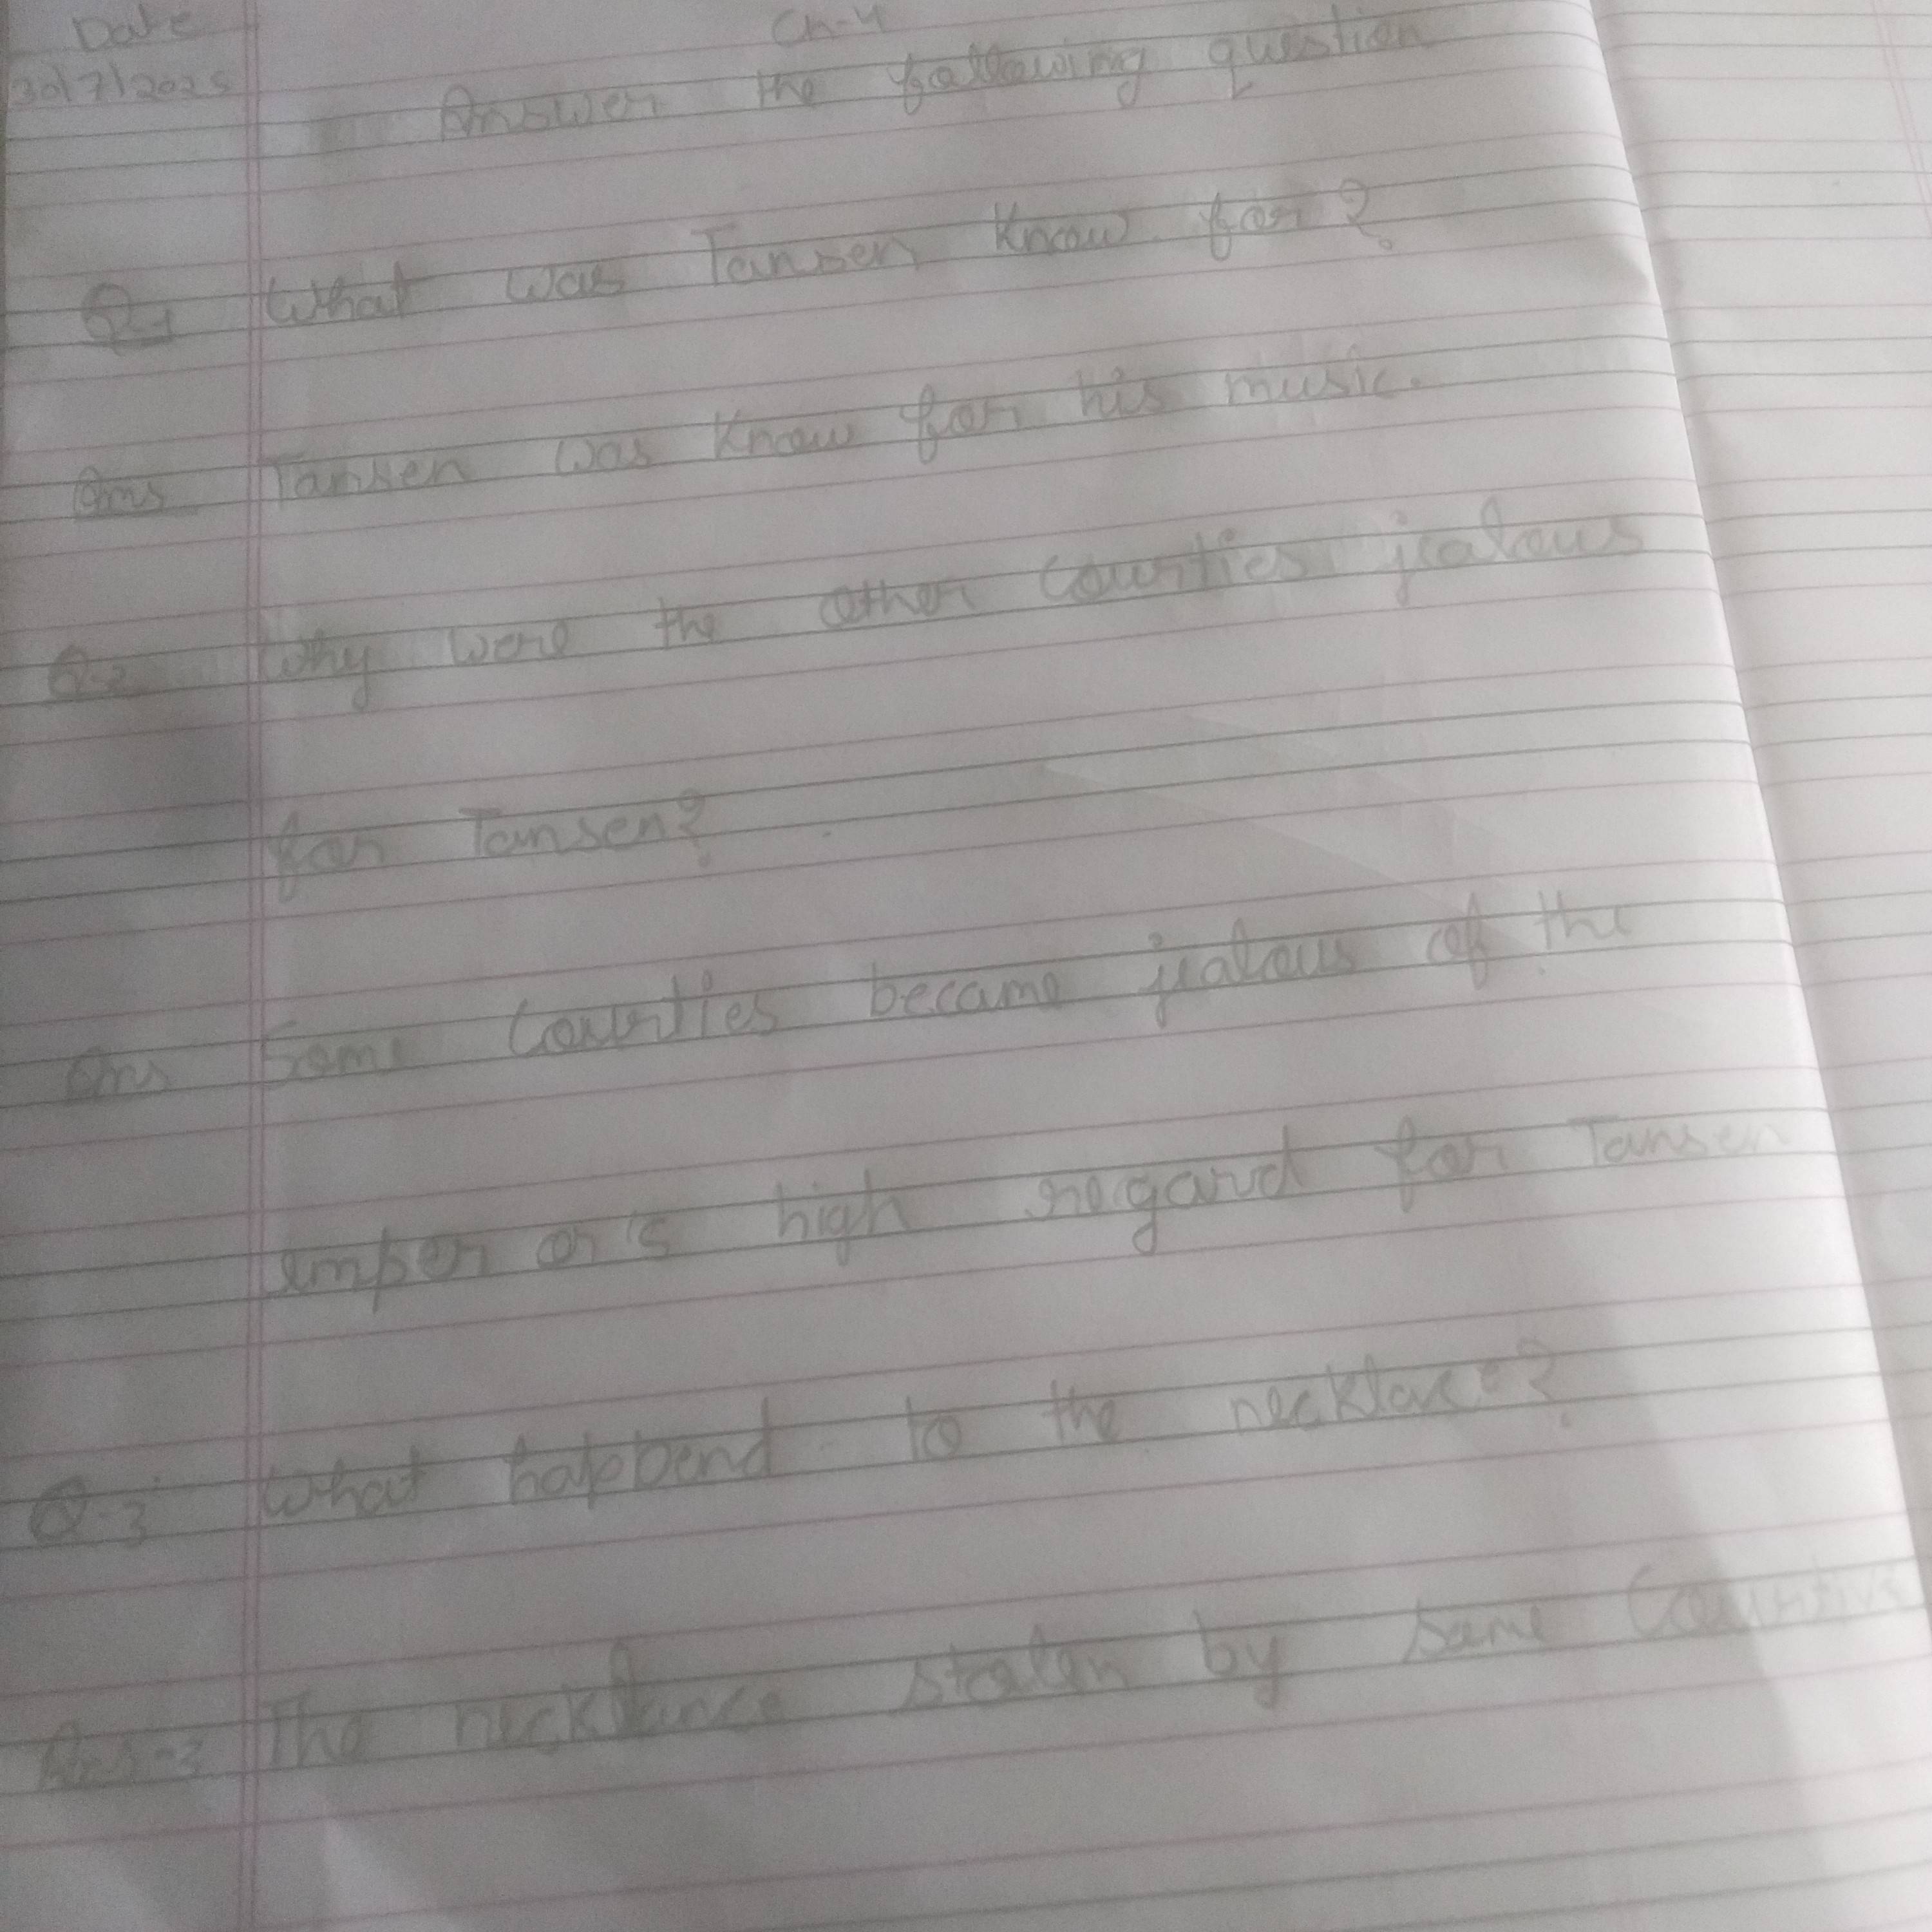 Date
Ch-4
30/7/2025
Answer the following question
Q-1 What was Tansen Know for?
Ans Tansen was Know for his music.
Q-2 Why were the other Courties jealous
for Tansen?
Ans Some Courties became jealous of the
emperor's high regard for Tansen
Q-3 What happend to the necklace?
Ans-3 The necklance stolen by some